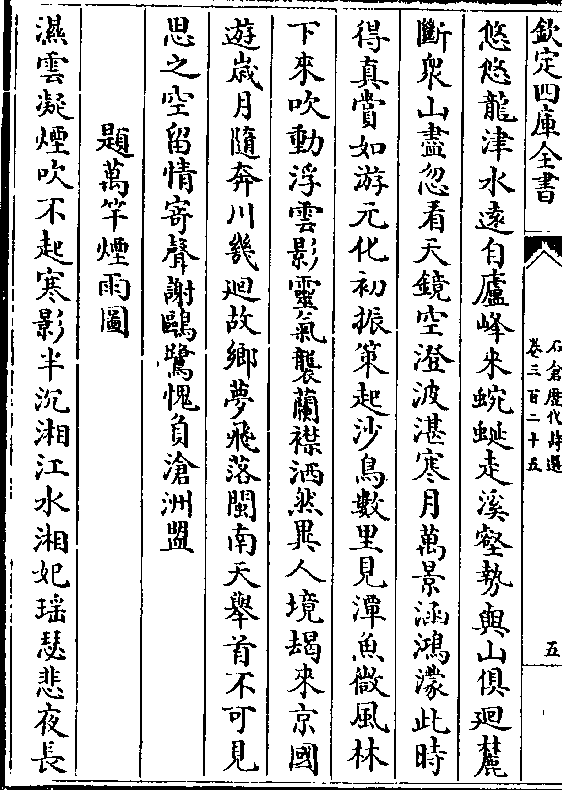 欽定四庫全書
石倉歷代詩選
卷三百二十五
五
悠悠龍津水遠自廬峰來蜿蜒走溪壑勢與山俱廻麓
斷衆山盡忽看天鏡空澄波湛寒月萬景涵鴻濛此時
得真賞如游元化初振策起沙鳥數里見潭魚微風林
下來吹動浮雲影靈氣襲蘭襟洒然異人境朅來京國
遊歲月隨奔川幾廻故鄉夢飛落閩南天舉首不可見
思之空留情寄聲謝鷗鷺愧負滄洲盟
題萬竿煙雨圖
濕雲凝煙吹不起寒影半沉湘江水湘妃瑶瑟悲夜長